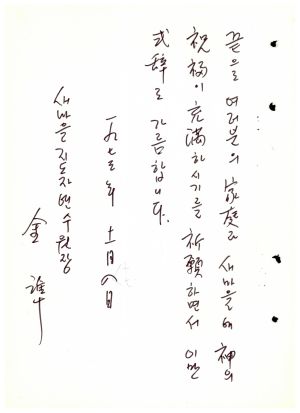 끝으로 여러분의 家庭과 새마을에 神의
祝福이 充滿하시기를 祈願하면서 이만
式辭로 가름합니다.
一九七五年 十一月 八日
새마을지도자연수원장
金 準